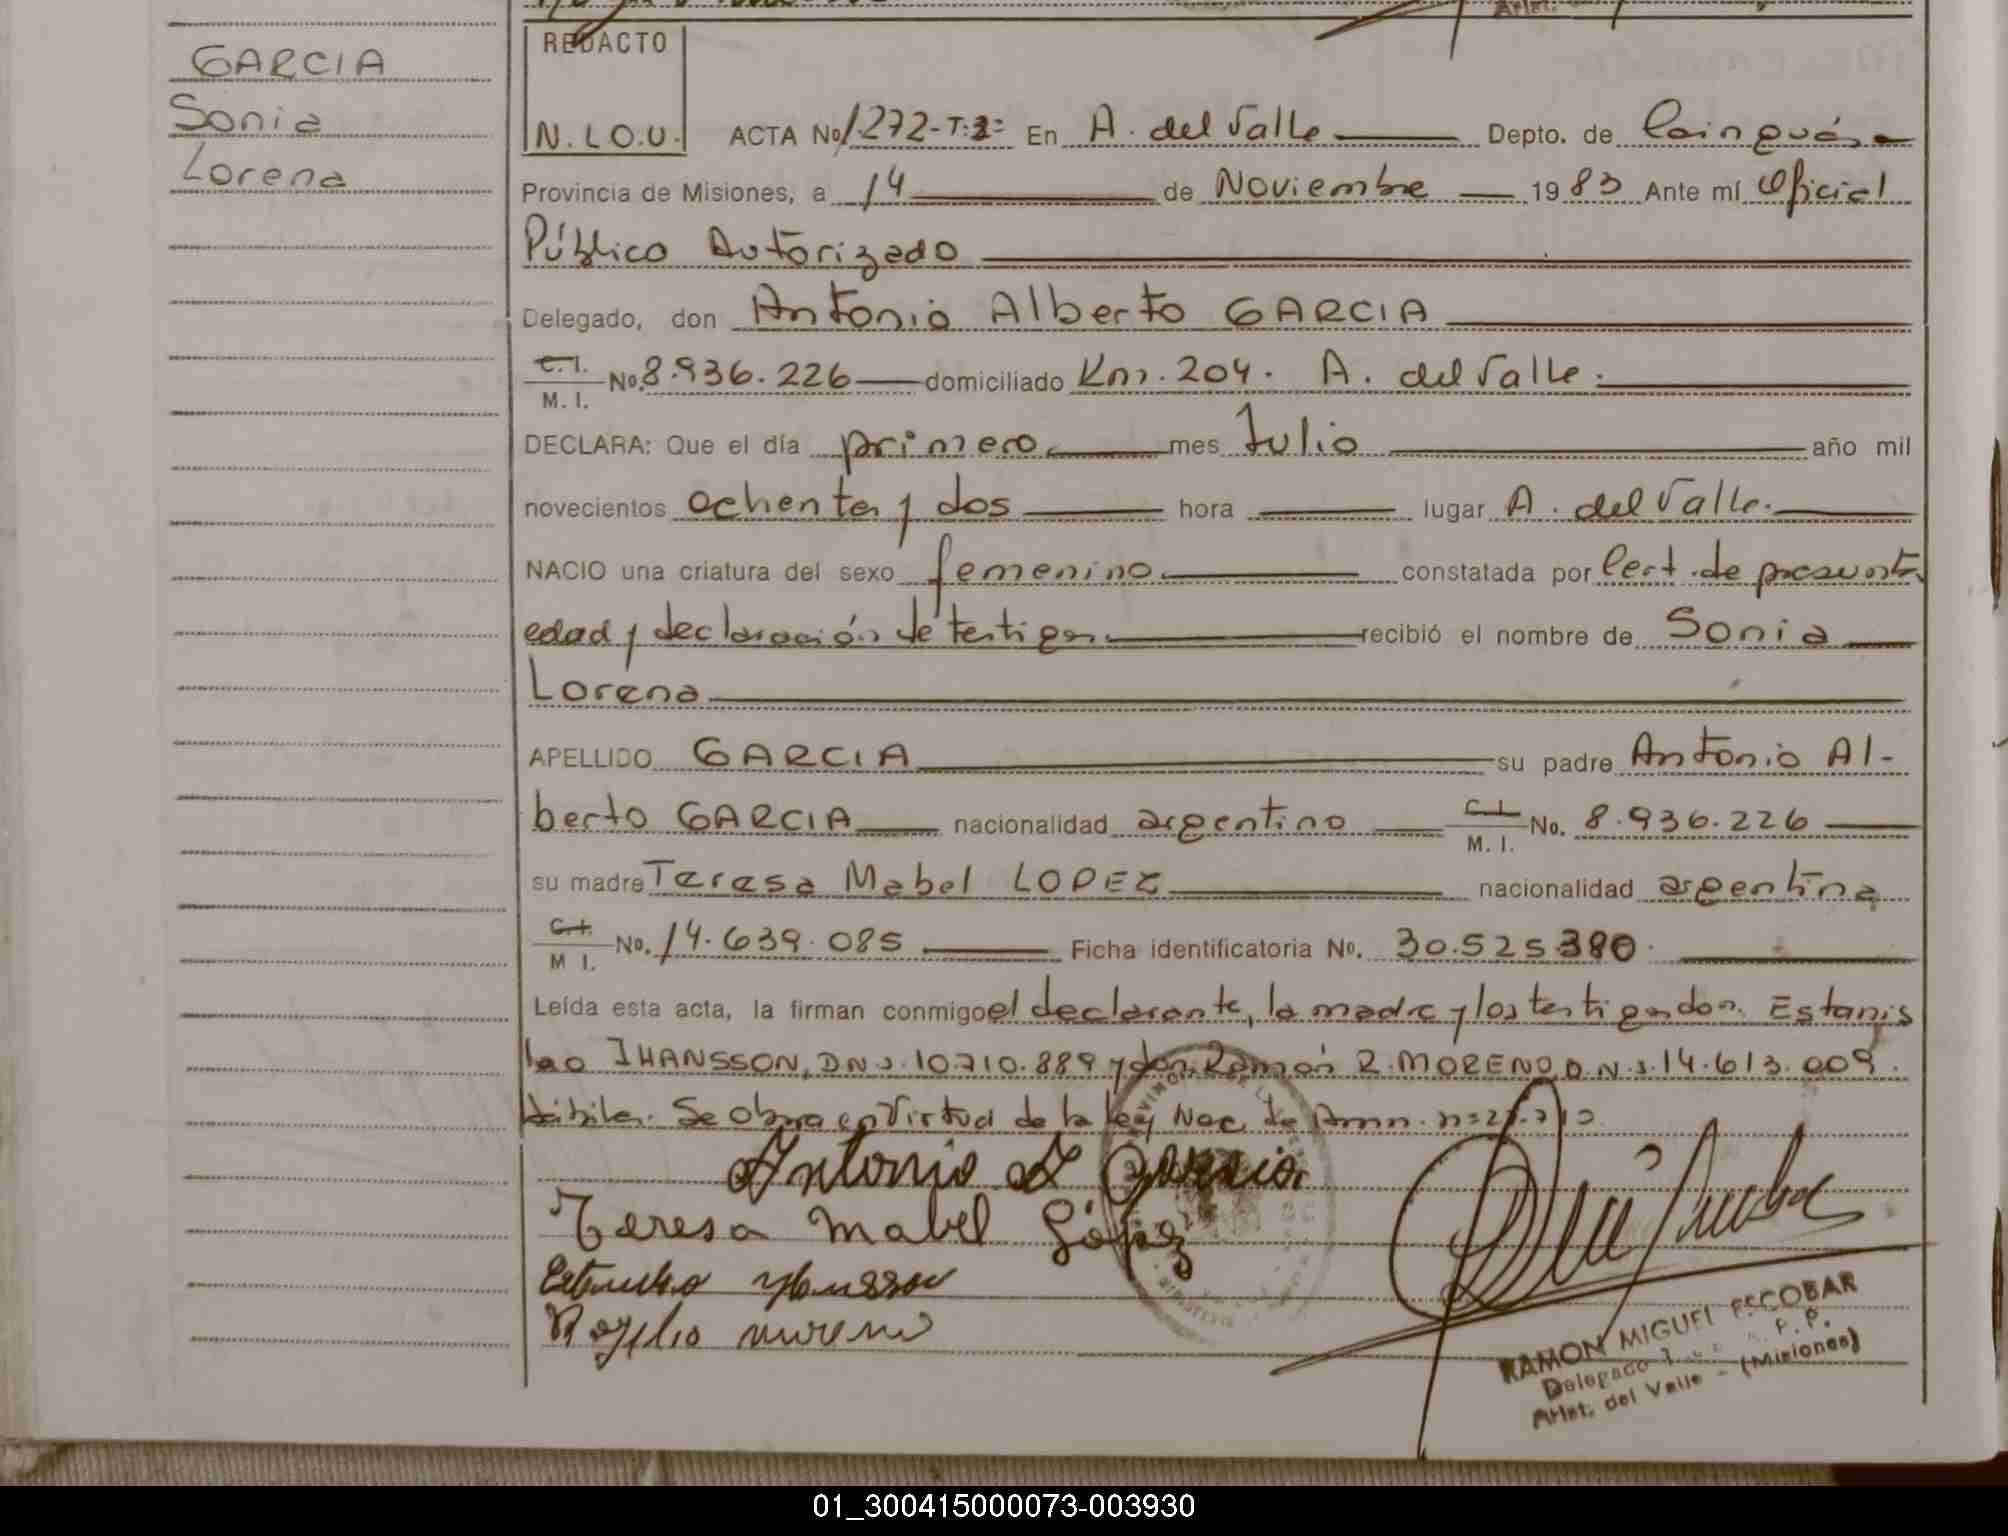 GARCIA
Sonia
Lorena
REDACTO
N.L.O.U.
ACTA No 1.272-T:3= En A. del Valle Depto. de Cainguás
Provincia de Misiones, a 14 de Noviembre 1983 Ante mí Oficial
Público Autorizado
Delegado, don Antonio Alberto GARCIA
C.I. M. I. No. 8.936.226 domiciliado Km. 204. A. del Valle.
DECLARA: Que el día primero mes Julio año mil
novecientos ochenta y dos hora lugar A. del Valle.
NACIO una criatura del sexo femenino constatada por Cert. de presunta
edad y declaración de testigos recibió el nombre de Sonia
Lorena
APELLIDO GARCIA su padre Antonio Al-
berto GARCIA nacionalidad argentino C.I. M. I. No. 8.936.226
su madre Teresa Mabel LOPEZ nacionalidad argentina
C.I. M I. No. 14.639.085 Ficha identificatoria No. 30.525.380.
Leída esta acta, la firman conmigo el declarante, la madre y los testigos don Estanis
lao IHANSSON, D.N.I. 10.710.889 y don Ramón R. MORENO, D.N.I. 14.613.009.
hábiles. Se obra en Virtud de la ley Nac. de Amn. n=
Antonio A Garcia
Teresa Mabel López
Rogelio moreno
RAMON MIGUEL ESCOBAR
Delegado
Arist. del Valle - (Misiones)
01_300415000073-003930